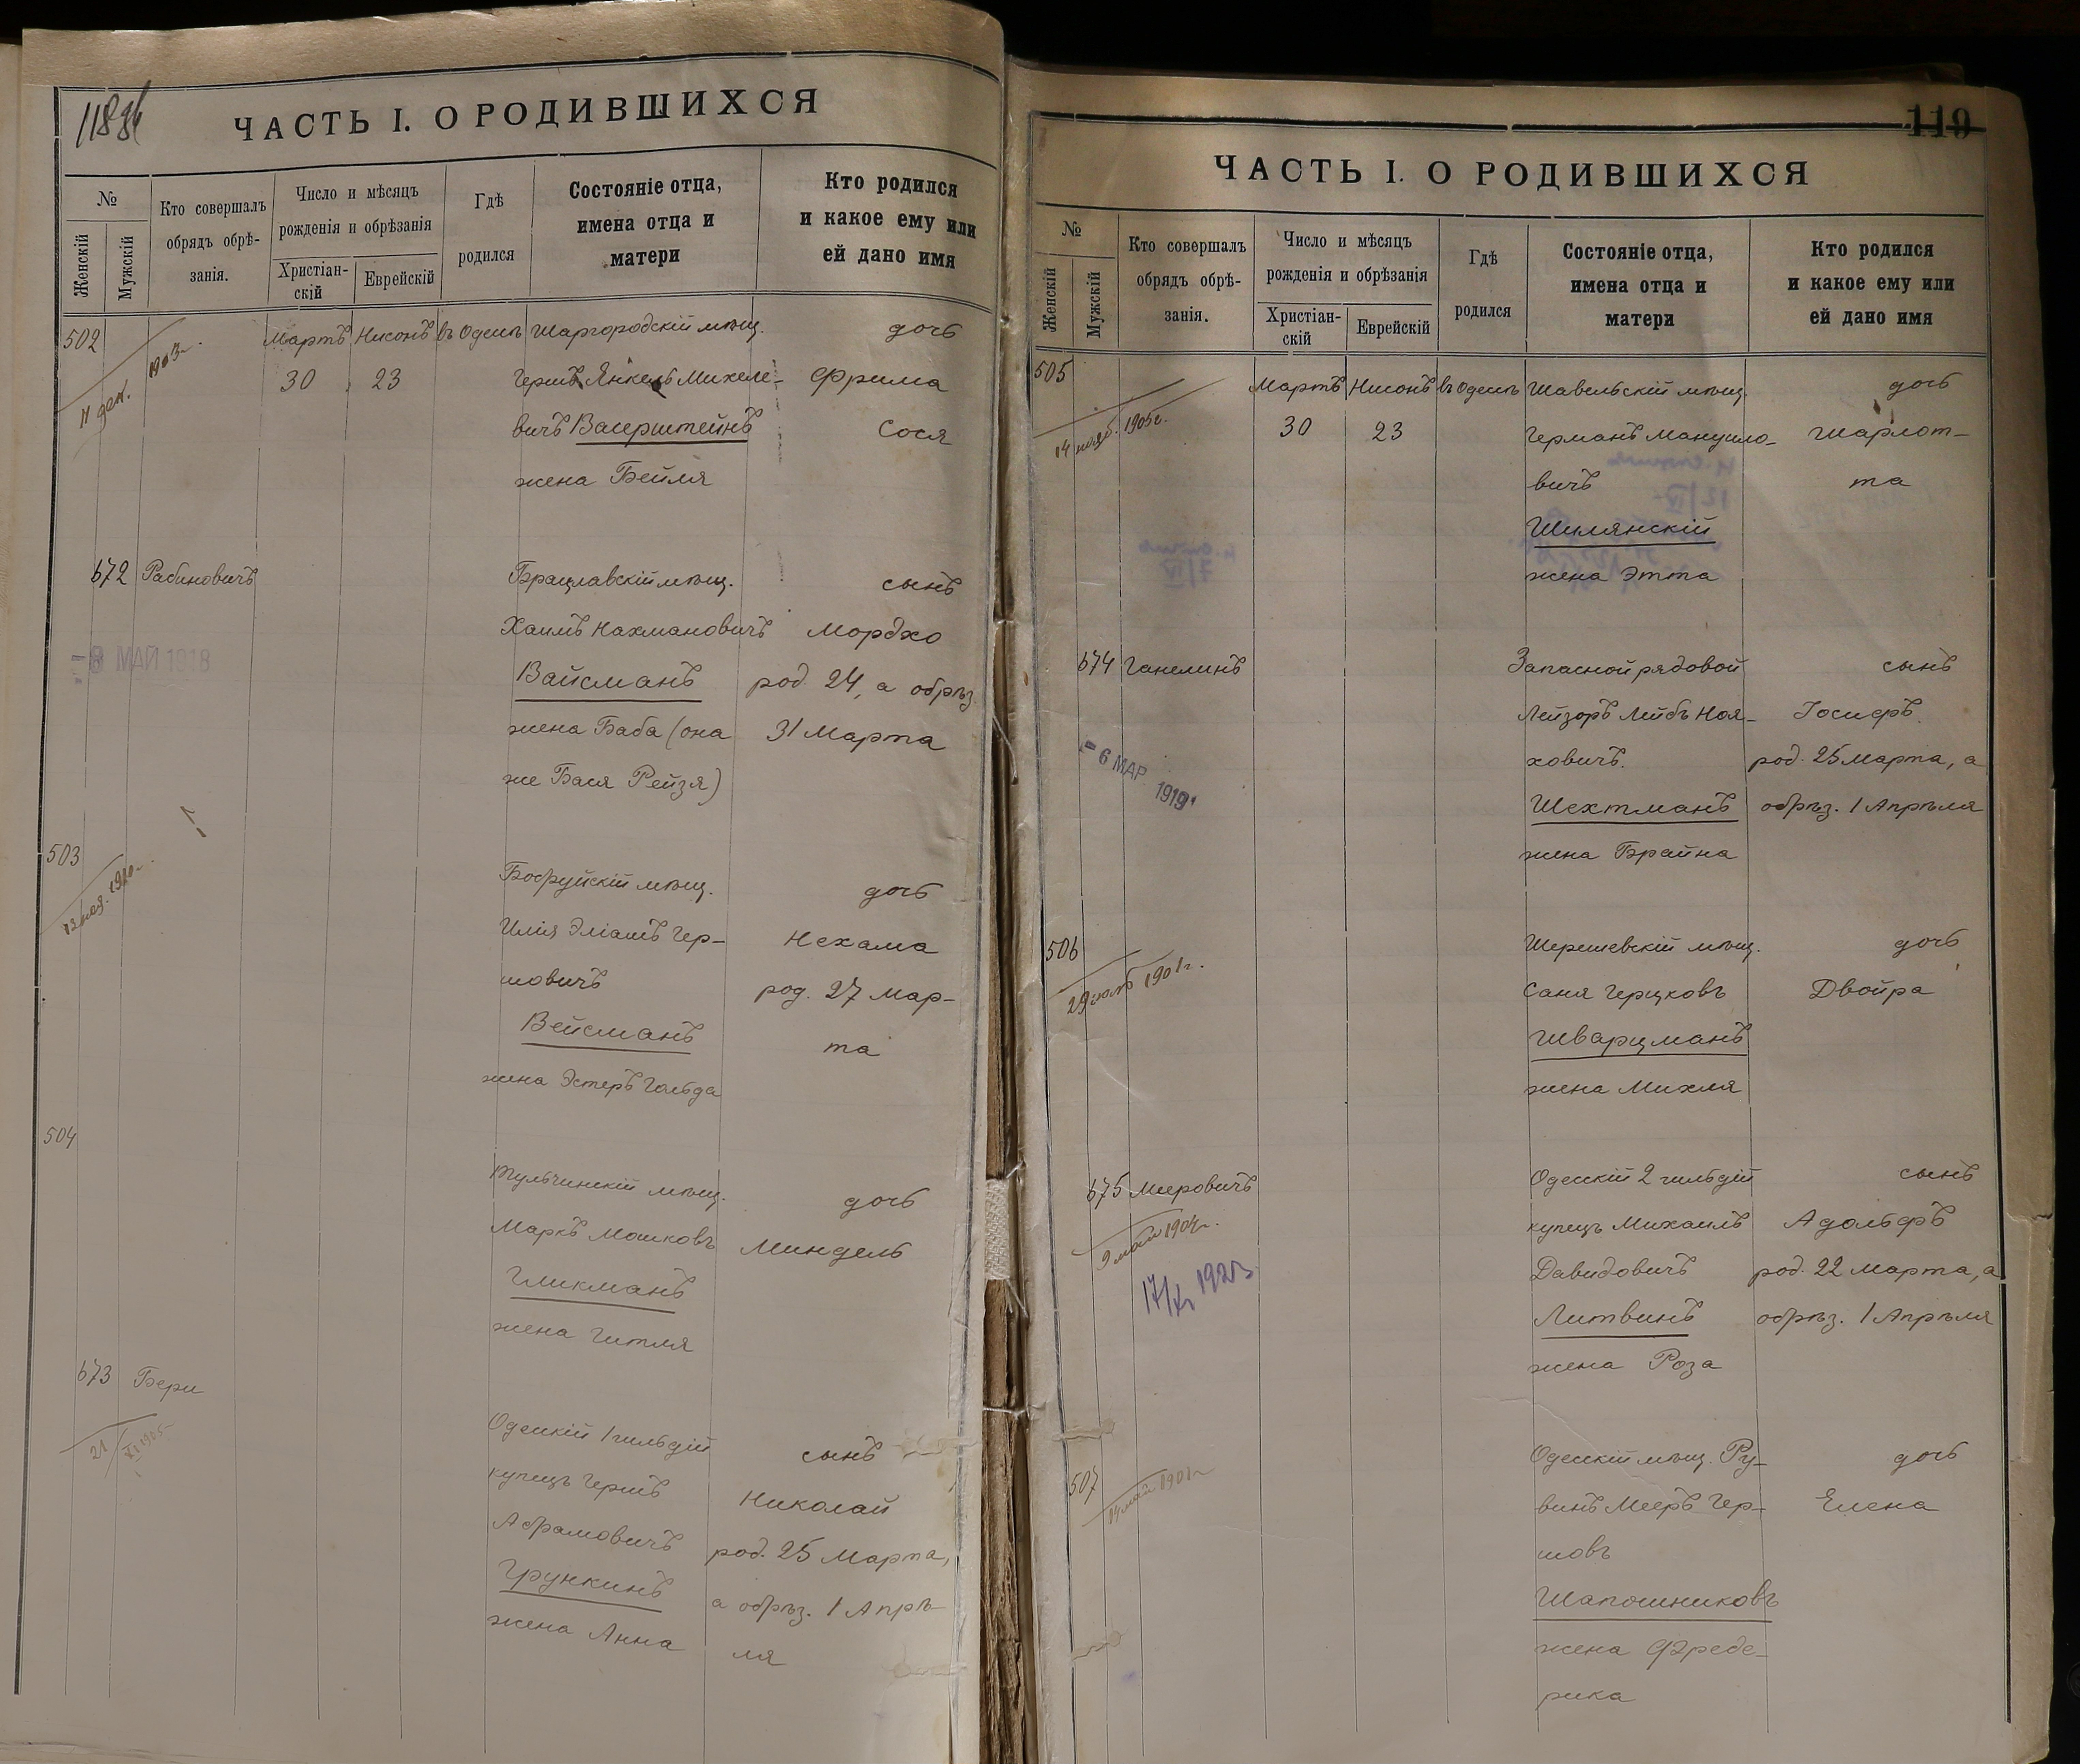 118об
ЧАСТЬ I. О РОДИВШИХСЯ
№
Женскій
Мужскій
Кто совершалъ
обрядъ обрѣ-
занія.
Число и мѣсяцъ
рожденія и обрѣзанія
Христіан-
скій
Еврейскій
Гдѣ
родился
Состояніе отца,
имена отца и
матери
Кто родился
и какое ему или
ей дано имя
502
11 дек. 1903г.
Мартъ Нисонъ въ Одессѣ Шаргородскій мѣщ. дочь
30 23 Гершъ Янкель Михеле- Фрима
вичъ Васерштейнъ Сося
жена Бейля
672 Рабиновичъ Брацлавскій мѣщ. сынъ
Хаимъ Нахмановичъ Мордхо
- 8 МАЙ 1918
Вайсманъ род. 24, а обрѣз.
жена Баба (она 31 Марта
же Бася Рейзя)
503
Бобруйскій мѣщ. дочь
Илія Эліашъ Гер- Нехама
шовичъ род. 27 Мар-
Вейсманъ та
жена Эстеръ Гольда
504
Тульчинскій мѣщ. дочь
Маркъ Мошковъ Миндель
Гликманъ
жена Гитля
673 Бери
21/XI 1905
Одесскій 1 гильдіи сынъ
купецъ Гершъ Николай
Абрамовичъ род. 25 Марта,
Грункинъ а обрѣз. 1 Апрѣ-
жена Анна ля
119
ЧАСТЬ I. О РОДИВШИХСЯ
№
Женскій
Мужскій
Кто совершалъ
обрядъ обрѣ-
занія.
Число и мѣсяцъ
рожденія и обрѣзанія
Христіан-
скій
Еврейскій
Гдѣ
родился
Состояніе отца,
имена отца и
матери
Кто родился
и какое ему или
ей дано имя
505
14 нояб. 1905г.
Мартъ Нисонъ въ Одессѣ Шавельскій мѣщ. дочь
30 23 Германъ Мануило- Шарлот-
вичъ та
Шилянскій
жена Этта
674 Ганелинъ Запасной рядовой сынъ
Лейзоръ Лейбъ Ноя- Іосифъ
ховичъ род. 25 Марта, а
- 6 МАР 1919
Шехтманъ обрѣз. 1 Апрѣля
жена Брайна
506
1901г.
Шерешевскій мѣщ. дочь
Саня Герцковъ Двойра
Шварцманъ
жена Михля
675 Мееровичъ Одесскій 2 гильдіи сынъ
9 мая 1904г.
купецъ Михаилъ Адольфъ
Давидовичъ род. 22 Марта, а
Литвинъ обрѣз. 1 Апрѣля
жена Роза
507
14 мая 1901г.
Одесскій мѣщ. Ру- дочь
винъ Мееръ Гер- Елена
шовъ
Шапошниковъ
жена Фреде-
рика